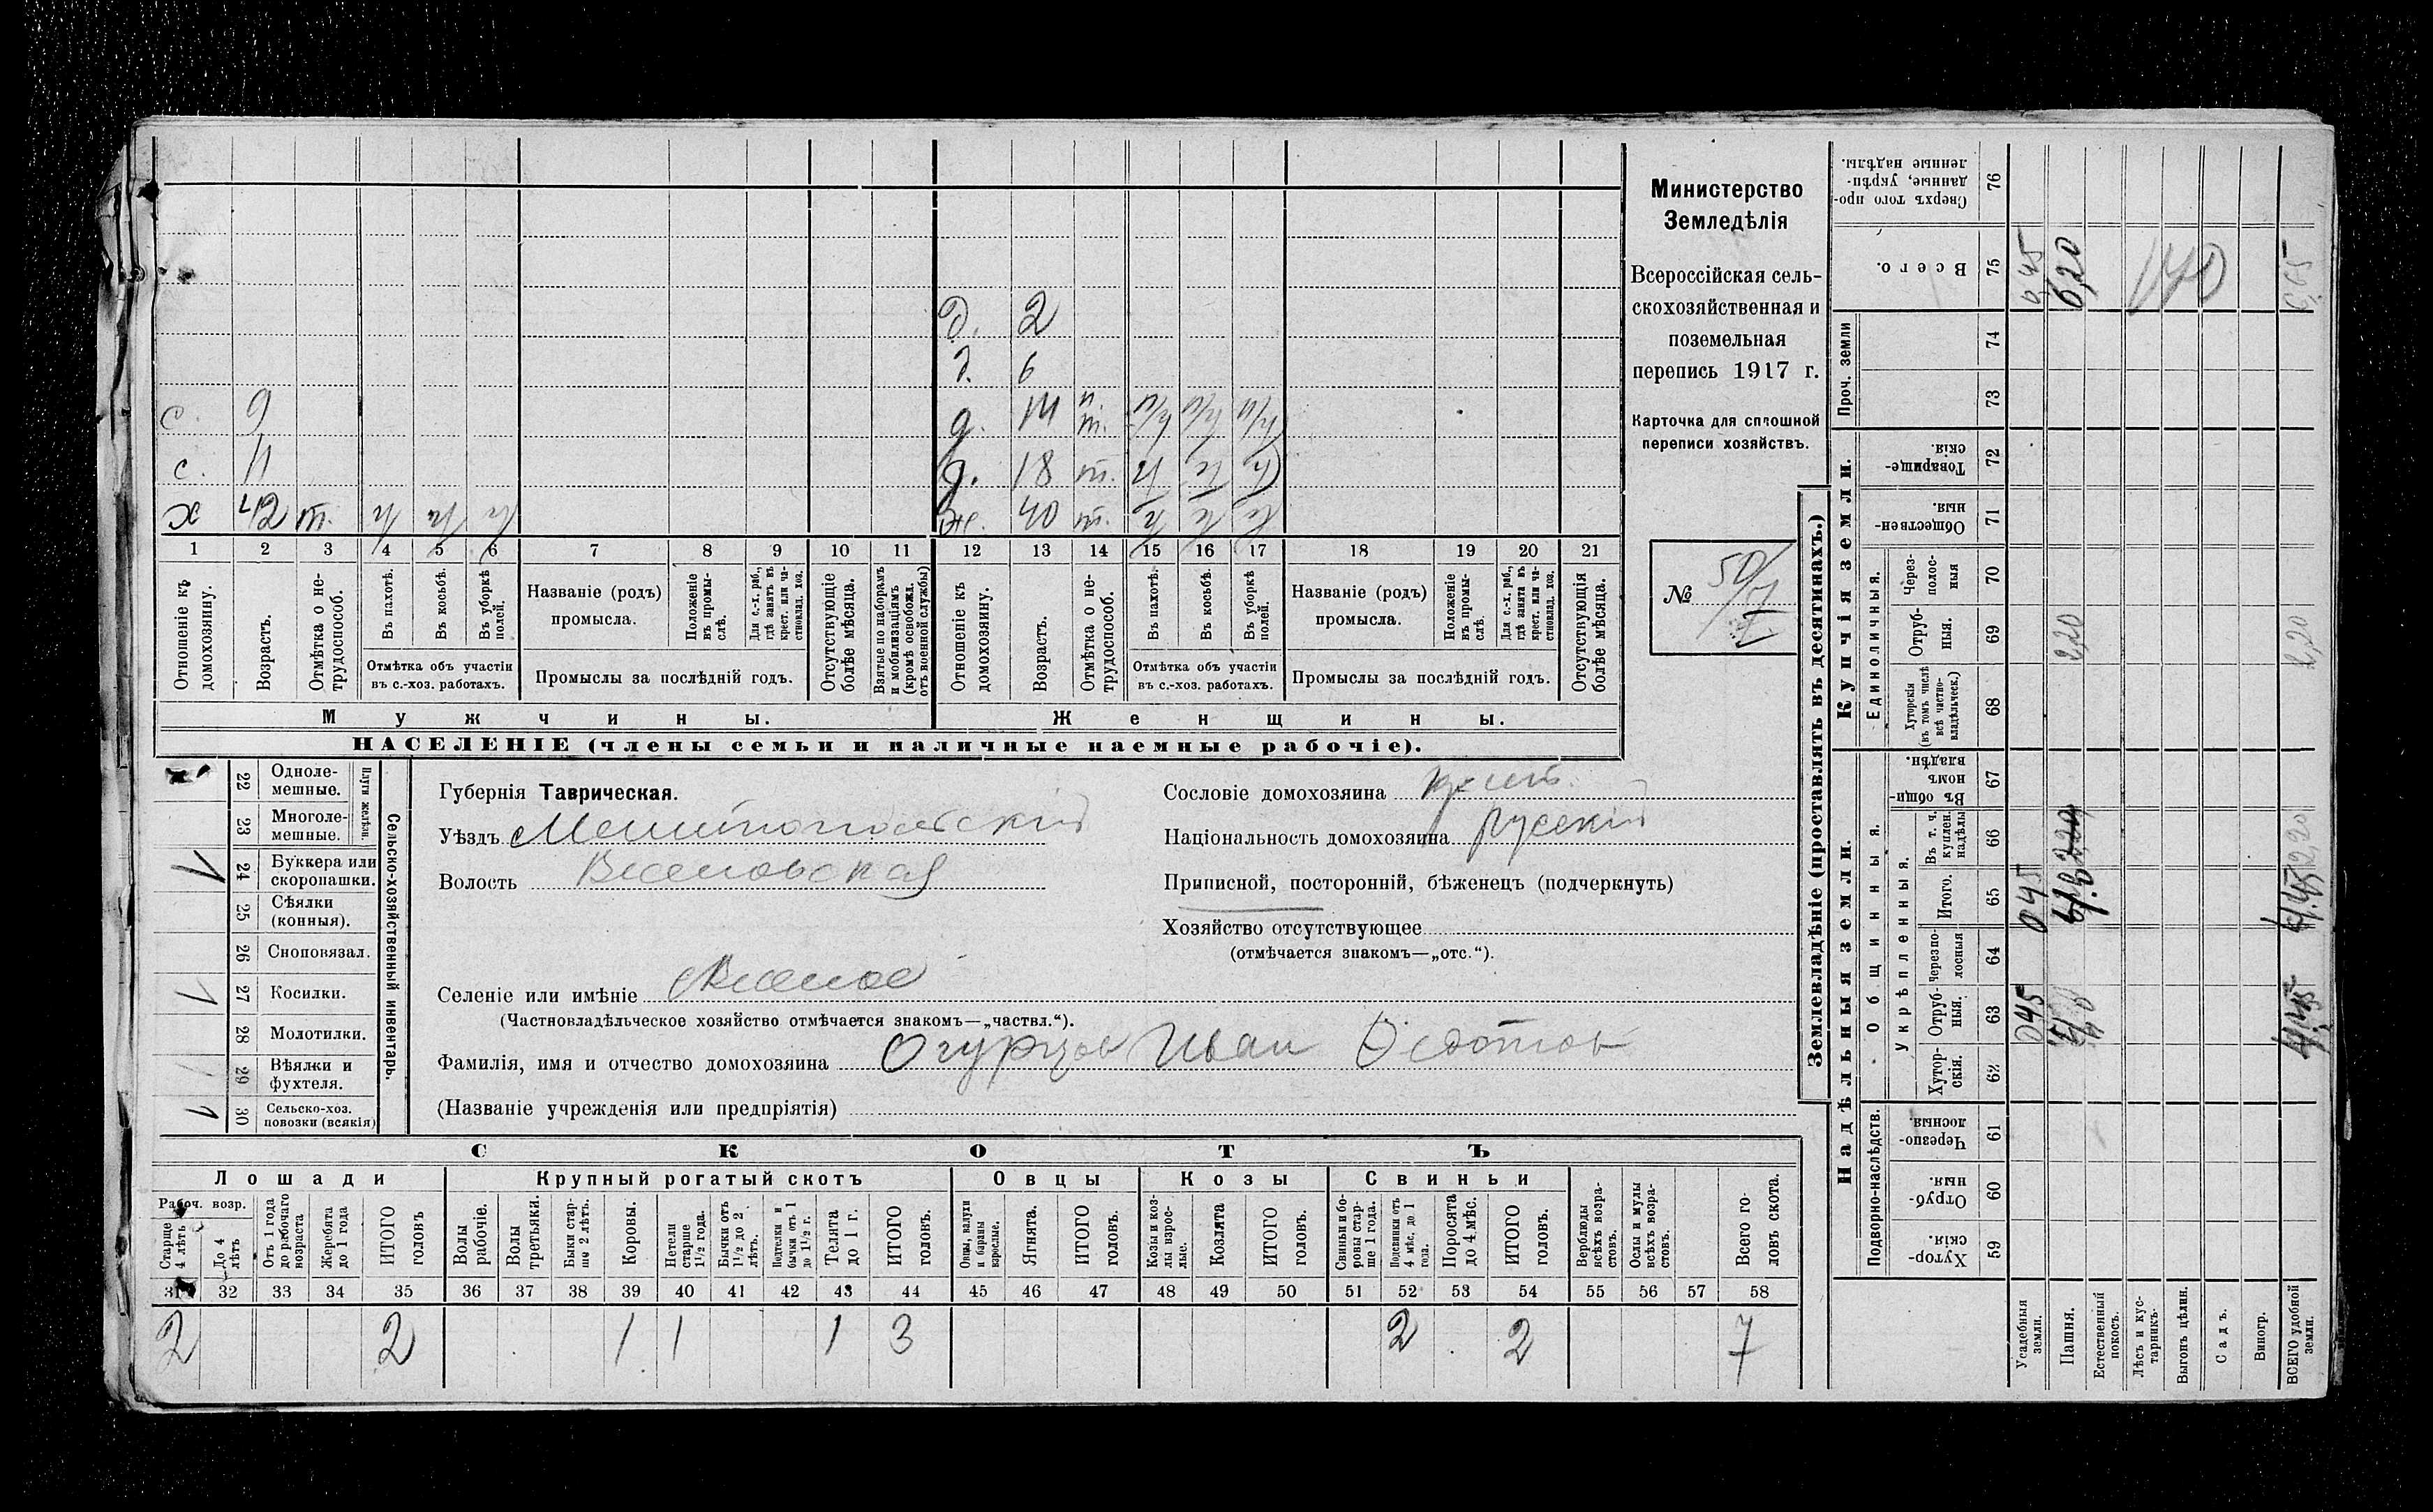 Министерство
Земледѣлія
Всероссійская сель-
скохозяйственная и
поземельная
перепись 1917 г.
Карточка для сплошной
переписи хозяйствъ.
№ 50
д. 2
д. 6
с. 9 д. 14
с. 11 д. 18 т.
х 42 т. ж. 40 т.
1 2 3 4 5 6 7 8 9 10 11 12 13 14 15 16 17 18 19 20 21
Отношеніе къ домохозяину.
Возрастъ.
Отмѣтка о не-трудоспособ.
Въ пахотѣ.
Въ косьбѣ.
Въ уборкѣ полей.
Отмѣтка объ участіи въ с.-хоз. работахъ.
Названіе (родъ) промысла.
Положеніе въ промы-слѣ.
Для с.-х. раб., гдѣ занятъ въ крест. или ча-стновлад. хоз.
Промыслы за послѣдній годъ.
Отсутствующіе болѣе мѣсяца.
Взятые по наборамъ и мобилизаціямъ (кромѣ освобожд. отъ военной службы)
Отношеніе къ домохозяину.
Возрастъ.
Отмѣтка о не-трудоспособ.
Въ пахотѣ.
Въ косьбѣ.
Въ уборкѣ полей.
Отмѣтка объ участіи въ с.-хоз. работахъ.
Названіе (родъ) промысла.
Положеніе въ промы-слѣ.
Для с.-х. раб., гдѣ занята въ крест. или ча-стновлад. хоз.
Промыслы за послѣдній годъ.
Отсутствующія болѣе мѣсяца.
Мужчины. Женщины.
НАСЕЛЕНІЕ (члены семьи и наличные наемные рабочіе).
Сельско-хозяйственный инвентарь.
Плуги желѣзн.
22 Одноле-мешные.
23 Многоле-мешные.
1 24 Буккера или скоропашки.
25 Сѣялки (конныя).
26 Сноповязал.
1 27 Косилки.
28 Молотилки.
29 Вѣялки и фухтеля.
1 30 Сельско-хоз. повозки (всякія)
Губернія Таврическая.
Уѣздъ Мелитопольскій
Волость Веселовская
Селеніе или имѣніе Веселое
(Частновладѣльческое хозяйство отмѣчается знакомъ—„частвл.“).
Фамилія, имя и отчество домохозяина Огурцов Иван Федотов
(Названіе учрежденія или предпріятія)
Сословіе домохозяина крест.
Національность домохозяина русскій
Приписной, посторонній, бѣженецъ (подчеркнуть)
Хозяйство отсутствующее
(отмѣчается знакомъ—„отс.“).
СКОТЪ
Лошади Крупный рогатый скотъ Овцы Козы Свиньи
Рабоч. возр.
Старше 4 лѣтъ
До 4 лѣтъ
Отъ 1 года до рабочаго возраста
Жеребята до 1 года
ИТОГО головъ
Волы рабочіе.
Волы третьяки.
Быки стар-ше 2 лѣтъ.
Коровы.
Нетели старше 1½ года.
Бычки отъ 1½ до 2 лѣтъ.
Подтелки и бычки отъ 1 до 1½ г.
Телята до 1 г.
ИТОГО головъ.
Овцы, валухи и бараны взрослые.
Ягнята.
ИТОГО головъ.
Козы и коз-лы взрос-лые.
Козлята
ИТОГО головъ.
Свиньи и бо-ровы стар-ше 1 года.
Подсвинки отъ 4 мѣс. до 1 года.
Поросята до 4 мѣс.
ИТОГО головъ.
Верблюды всѣхъ возра-стовъ.
Ослы и мулы всѣхъ возра-стовъ.
Всего го-ловъ скота.
31 32 33 34 35 36 37 38 39 40 41 42 43 44 45 46 47 48 49 50 51 52 53 54 55 56 57 58
2 2 1 1 1 3 2 2 7
Землевладѣніе (проставлять въ десятинахъ.)
Надѣльныя земли. Купчія земли. Проч. земли
Подворно-наслѣдств. Общинныя. Укрѣпленныя. Единоличныя.
Хутор-скія. 59
Отруб-ныя. 60
Черезпо-лосныя 61
Хутор-скія. 62
Отруб-ныя. 63
Черезпо-лосныя 64
Итого. 65
Въ т. ч. куплен. надѣлы 66
Въ общи-номъ владѣн. 67
Хуторскія (въ томъ числѣ всѣ частно-владѣльческ.) 68
Отруб-ныя. 69
Через-полос-ныя 70
Обществен-ныя. 71
Товарище-скія. 72
73
74
Всего. 75
Сверхъ того про-данные, укрѣп-ленные надѣлы. 76
Усадебныя земли. 045 045 0,45
Пашня. 2,20 6,20
Естественный покосъ.
Лѣсъ и кус-тарникъ.
Выгонъ цѣлин.
Садъ.
Виногр.
ВСЕГО удобной земли. 4,45 2,20 2,20 6,65
140